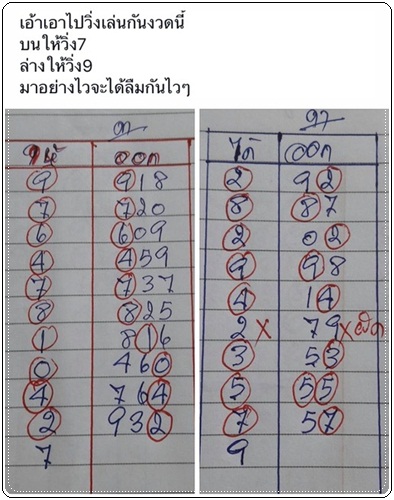 เอ้าเอาไปวิ่งเล่นกันงวดนี้
บนให้วิ่ง7
ล่างให้วิ่ง9
มาอย่างไวจะได้ลืมกันไวๆ
ออก
9 918
7 720
6 609
4 459
7 737
8 825
1 816
0 460
4 764
2 932
7
ได้ ออก
2 92
8 87
2 02
9 98
4 14
2 x 79 x ผิด
3 53
5 55
7 57
9